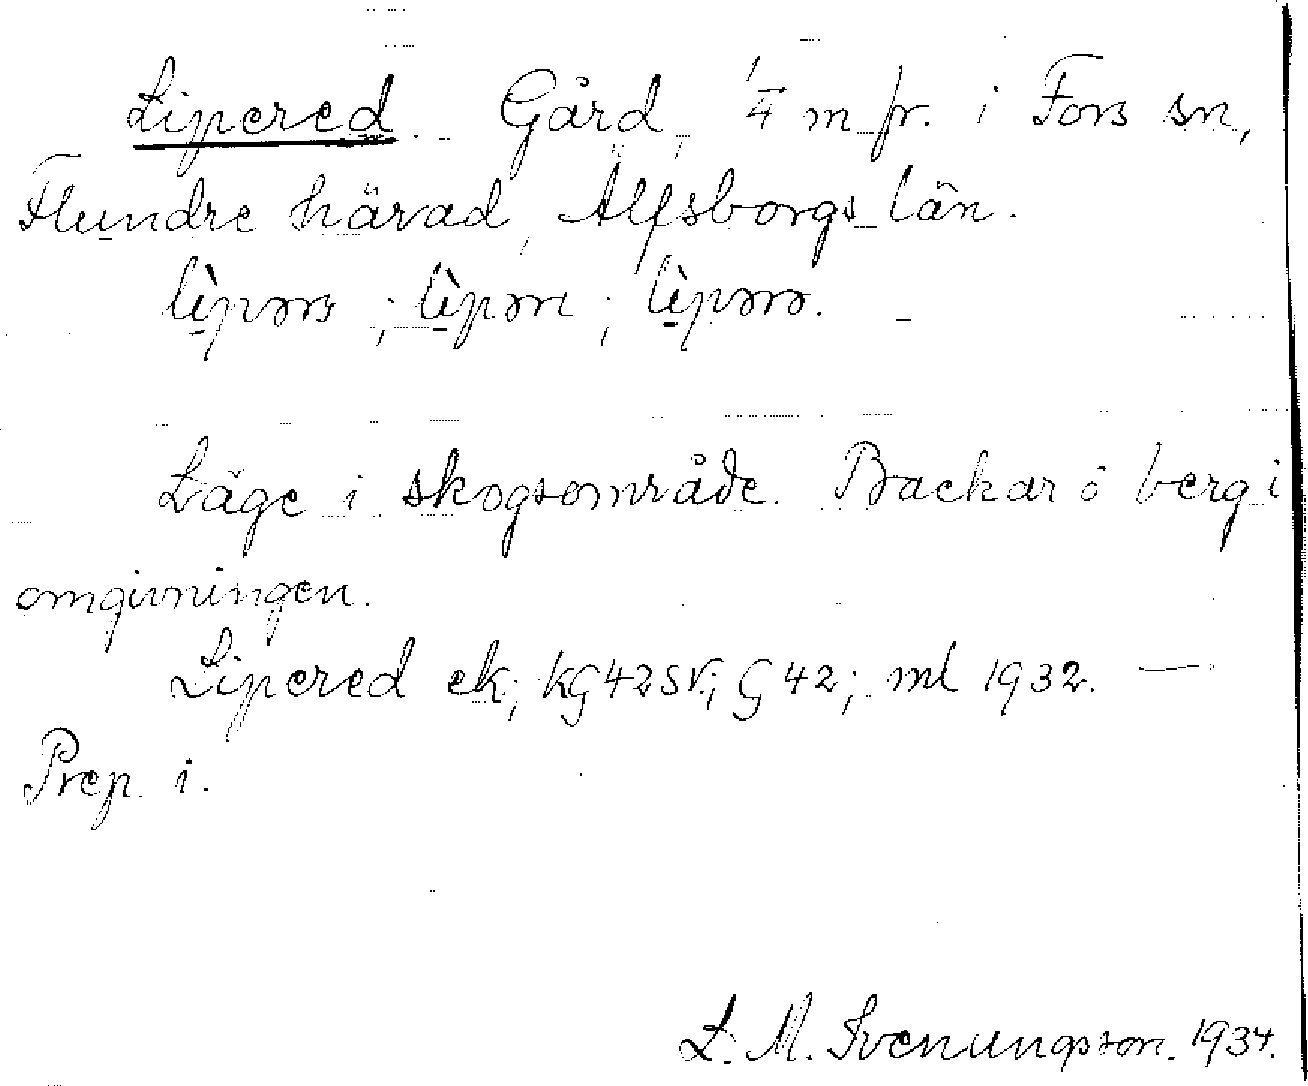 Lipered. Gård, 1/4 m fr. i Fors sn,
Flundre härad, Älfsborgs län.
lìpərs; lìpərn; lìpərə.
Läge i skogsområde. Backar o berg i
omgivningen.
Lipered ek; KG42SV; G 42; ml 1932. —
Prep. i.
L. M. Svenungson. 1934.